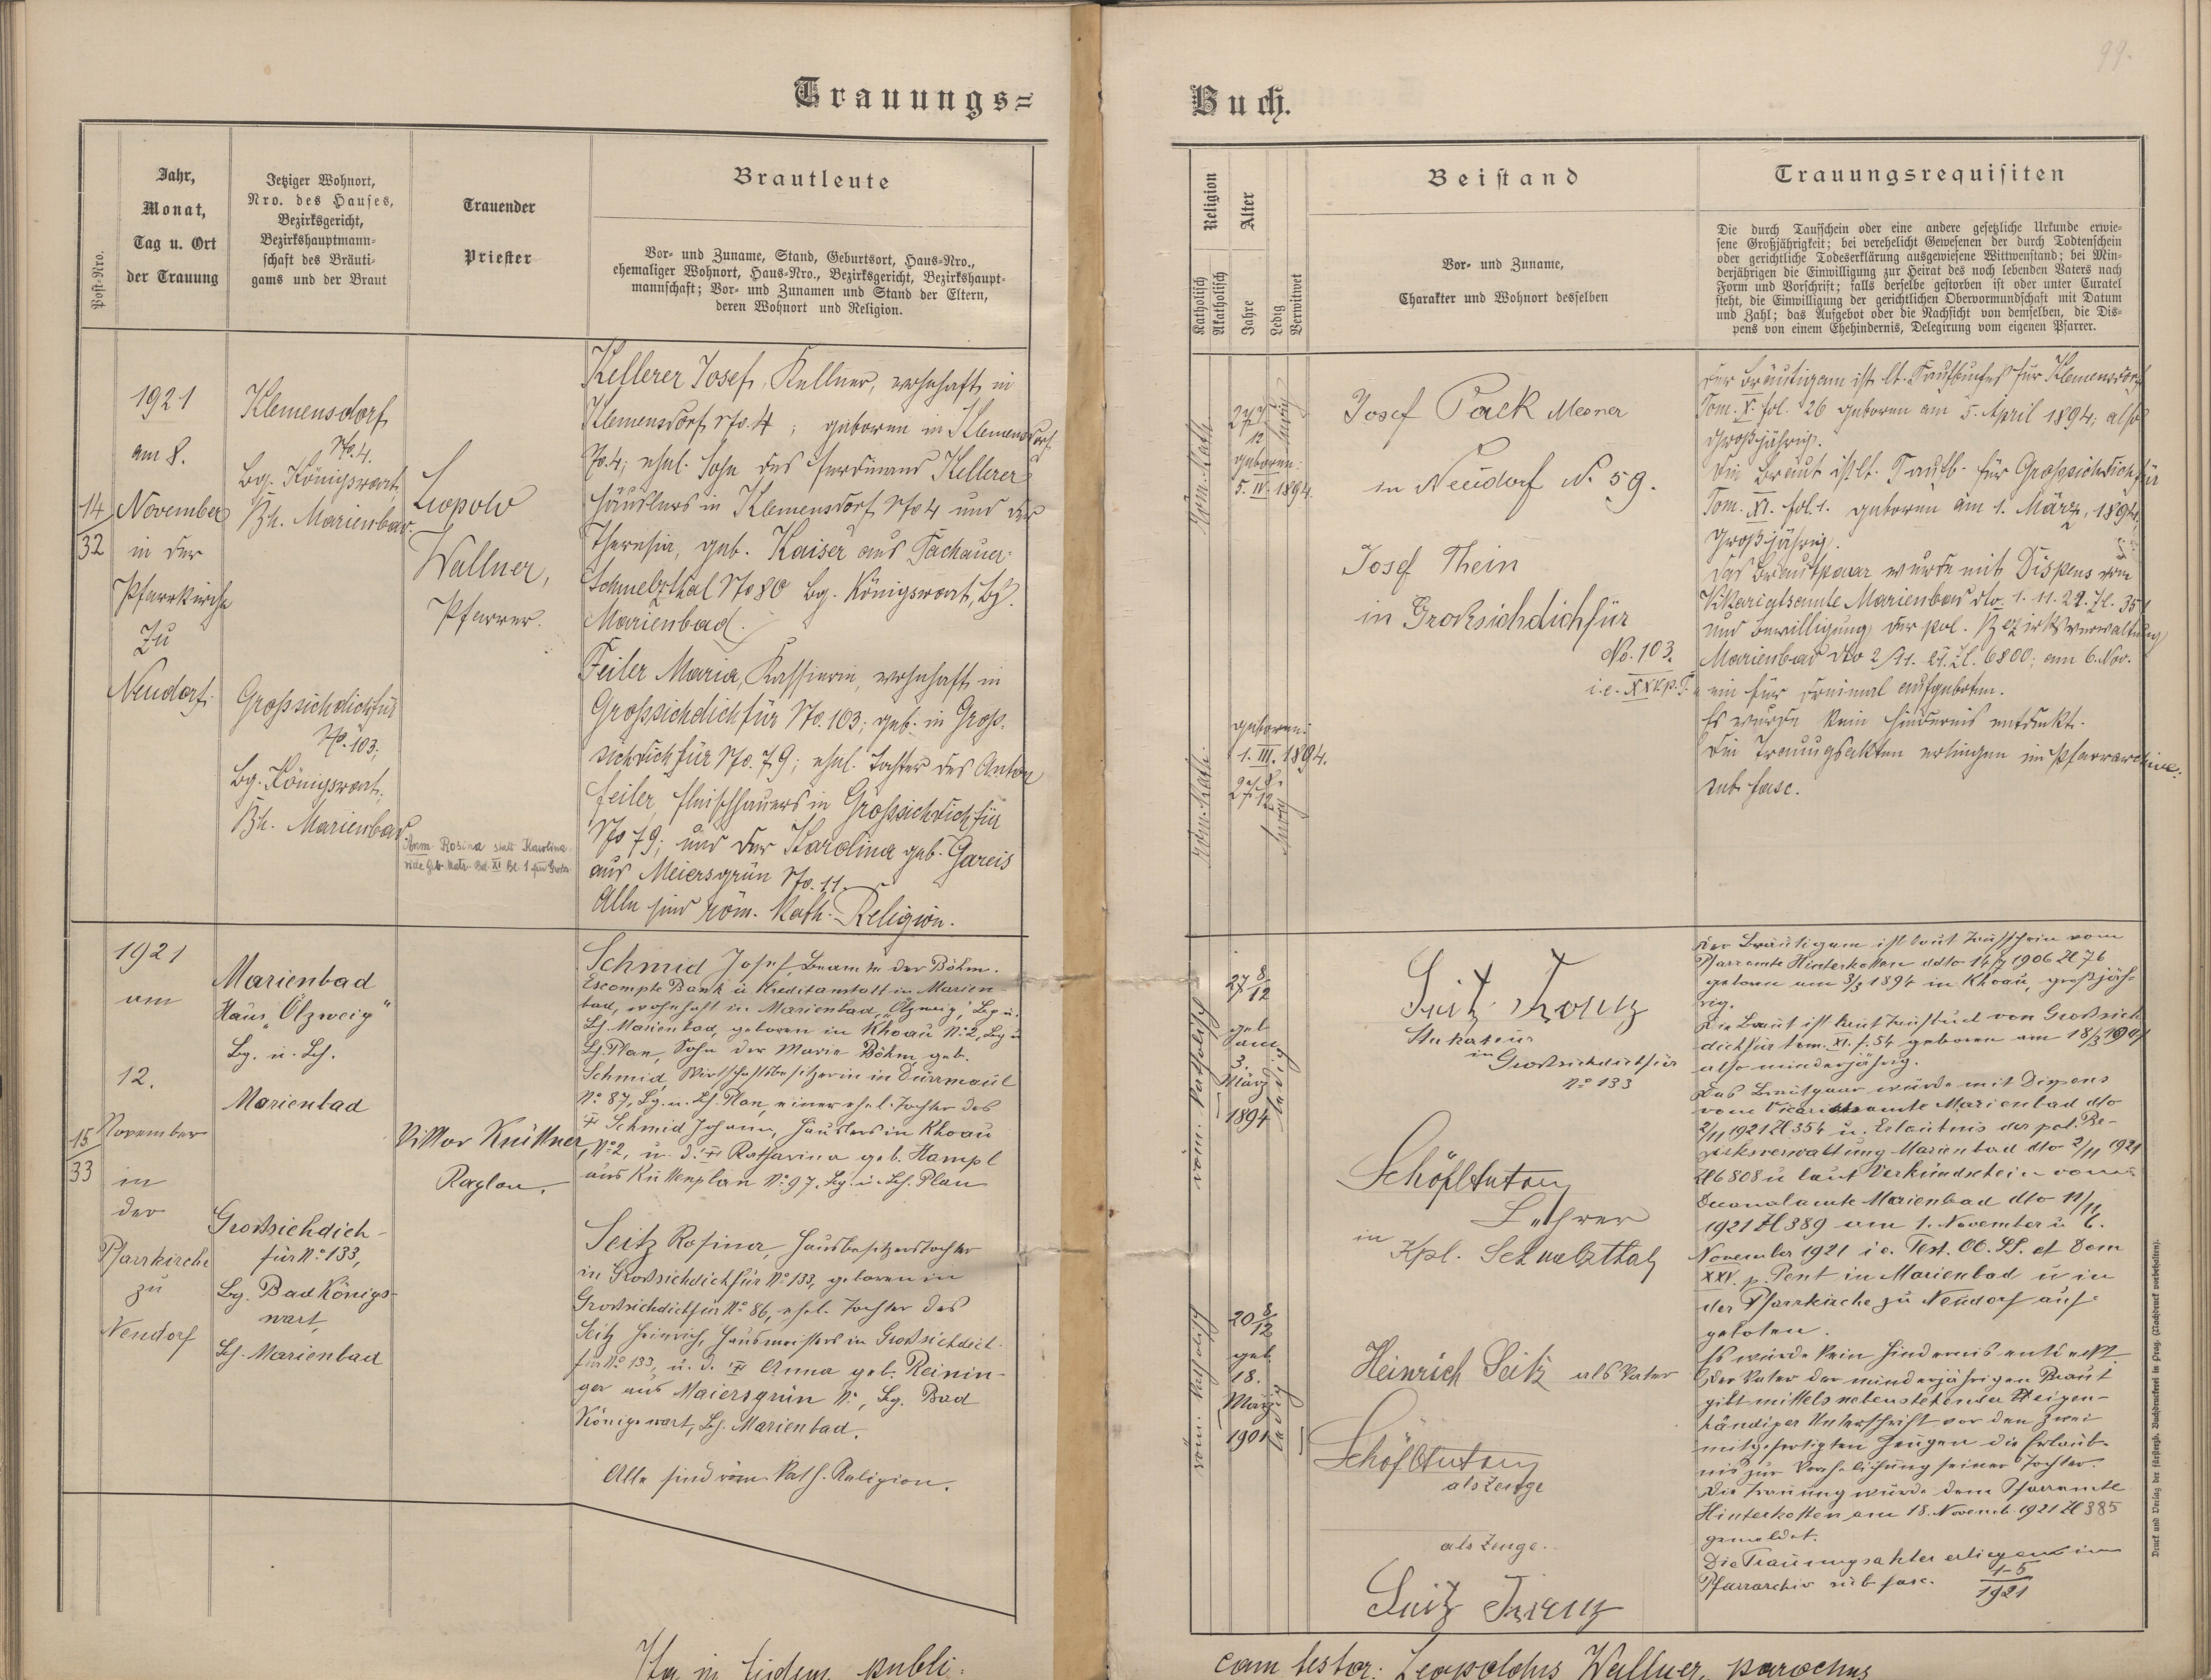 99.
Trauungs=
Buch.
Post-Nro.
Jahr,
Monat,
Tag u. Ort
der Trauung
Jetziger Wohnort,
Nro. des Hauses,
Bezirksgericht,
Bezirkshauptmann-
schaft des Bräuti-
gams und der Braut
Trauender
Priester
Brautleute
Vor- und Zuname, Stand, Geburtsort, Haus-Nro.,
ehemaliger Wohnort, Haus-Nro., Bezirksgericht, Bezirkshaupt-
mannschaft; Vor- und Zunamen und Stand der Eltern,
deren Wohnort und Religion.
Religion
Katholisch
Akatholisch
Alter
Jahre
Ledig
Verwitwet
Beistand
Vor- und Zuname,
Charakter und Wohnort desselben
Trauungsrequisiten
Die durch Taufschein oder eine andere gesetzliche Urkunde erwie-
sene Großjährigkeit; bei verehelicht Gewesenen der durch Todtenschein
oder gerichtliche Todeserklärung ausgewiesene Wittwenstand; bei Min-
derjährigen die Einwilligung zur Heirat des noch lebenden Vaters nach
Form und Vorschrift; falls derselbe gestorben ist oder unter Curatel
steht, die Einwilligung der gerichtlichen Obervormundschaft mit Datum
und Zahl; das Aufgebot oder die Nachsicht von demselben, die Dis-
pens von einem Ehehindernis, Delegirung vom eigenen Pfarrer.
14
32
1921
am 8.
November
in der
Pfarrkirche
zu
Neudorf.
Klemensdorf
No. 4.
Bg. Königswart,
Bh. Marienbad.
Grossichdichfür
No. 103;
Bg. Königswart,
Bh. Marienbad.
Leopold
Wallner,
Pfarrer.
Anm. Rosina statt Karolina
vide Geb. Matr. Bd. XI Bl. 1 für Großs.
Kellerer Josef, Kellner, wohnhaft in
Klemensdorf No. 4; geboren in Klemensdorf
No. 4; ehel. Sohn des Ferdinand Kellerer
Häuslers in Klemensdorf No 4 und der
Theresia, geb. Kaiser aus Tachauer-
Schmelzthal No 80 Bg. Königswart, Bh.
Marienbad.
Feiler Maria, Kassierin, wohnhaft in
Grossichdichfür No. 103; geb. in Gross-
sichdichfür No. 79; ehel. Tochter des Anton
Feiler Fleischhauers in Grossichdichfür
No 79; und der Karolina geb. Gareis
aus Meiersgrün No. 11.
Alle sind röm. kath. Religion.
Röm. Kath.
27 7/12
geboren:
5. IV. 1894.
ledig
Röm. Kath.
geboren:
1. III. 1894.
27 8/12
ledig
Josef Pack Mesner
in Neudorf N. 59.
Josef Thein
in Großsichdichfür
No. 103.
i. e. XXV. p. P.
Der Bräutigam ist lt. Taufbuches für Klemensdorf
Tom. X. fol. 26 geboren am 5. April 1894; also
großjährig.
Die Braut ist lt. Taufb. für Grossichdichfür
Tom. XI. fol. 1. geboren am 1. März, 1894,
großjährig.
Das Brautpaar wurde mit Dispens vom
Vikariatsamte Marienbad dto. 1. 11. 21. Zl. 351
und Bewilligung der pol. Bezirksverwaltung
Marienbad dto 2/11. 21. Zl. 6800; am 6. Nov.
ein für dreimal aufgeboten.
Es wurde kein Hindernis entdeckt.
Die Trauungsakten erliegen im Pfarrarchive:
sub fasc.
15
33
1921
am
12.
November
in
der
Pfarrkirche
zu
Neudorf
Marienbad
Haus „Ölzweig“
Bg. u. Bh.
Marienbad
Großsichdich-
für N° 133,
Bg. Bad Königs-
wart,
Bh. Marienbad
Viktor Knüttner
Kaplan.
Schmid Josef, Beamte der Böhm.
Escompte Bank u. Kreditanstalt in Marien-
bad, wohnhaft in Marienbad, „Ölzweig“, Bg. u.
Bh. Marienbad, geboren in Khoau N° 2, Bg. u
Bh. Plan, Sohn der Marie Böhm geb.
Schmid, Wirtschaftsbesitzerin in Dürrmaul
N° 87, Bg. u. Bh. Plan, einer ehel. Tochter des
Schmid Johann, Häuslers in Khoau
N° 2, u. d. Katharina geb. Hampl
aus Kuttenplan N° 97, Bg. u. Bh. Plan
Seitz Rosina, Hausbesitzerstochter
in Großsichdichfür N° 133, geboren in
Großsichdichfür N° 86, ehel. Tochter des
Seitz Heinrich, Hausmeisters in Großsichdich-
für N° 133, u. d. Anna geb. Reinin-
ger aus Maiersgrün N°, Bg. Bad
Königswart, Bh. Marienbad.
Alle sind röm. kath. Religion.
röm. katholisch
27 8/12
geb.
am
3.
März
1894
ledig
röm. katholisch
20 8/12
geb.
18.
März
1901
ledig
Seitz Franz
Stukateur
in Großsichdichfür
N° 133
Schöfl Anton
Lehrer
in
Kpl. Schmelzthal
Heinrich Seitz als Vater
Schöfl Anton
als Zeuge
als Zeuge.
Seitz Franz
Der Bräutigam ist laut Taufschein vom
Pfarramte Hinterkotten ddto 14/7 1906 Zl 76
geboren am 3/3 1894 in Khoau, großjäh-
rig.
Die Braut ist laut Taufbuch von Großsich-
dichfür tom. XI. f. 54 geboren am 18/3 1901
also minderjährig.
Das Brautpaar wurde mit Dispens
vom Vicariatsamte Marienbad dto
2/11 1921 Zl 354 u. Erlaubnis der pol. Be-
zirksverwaltung Marienbad dto 2/11 1921
Zl 6808 u laut Verkündschein vom
Decanalamte Marienbad dto 11/11
1921 Zl 389 am 1. November u 6.
November 1921 i. e. Fest. OO. SS. et Dom
XXV. p. Pent in Marienbad u in
der Pfarrkirche zu Neudorf auf-
geboten.
Es wurde kein Hindernis entdeckt.
Der Vater der minderjährigen Braut
gibt mittels nebenstehender eigen-
händiger Unterschrift vor den zwei
mitgefertigten Zeugen die Erlaub-
nis zur Verehelichung seiner Tochter.
Die Trauung wurde dem Pfarramte
Hinterkotten am 18. Novemb. 1921 Zl 385
gemeldet.
Die Trauungsakten erliegen im
Pfarrarchiv sub fasc. 1-5/1921
Druck und Verlag der fürsterzb. Buchdruckerei in Prag. (Nachdruck vorbehalten).
Ita in fidem publi-
cam testor: Leopoldus Wallner, parochus